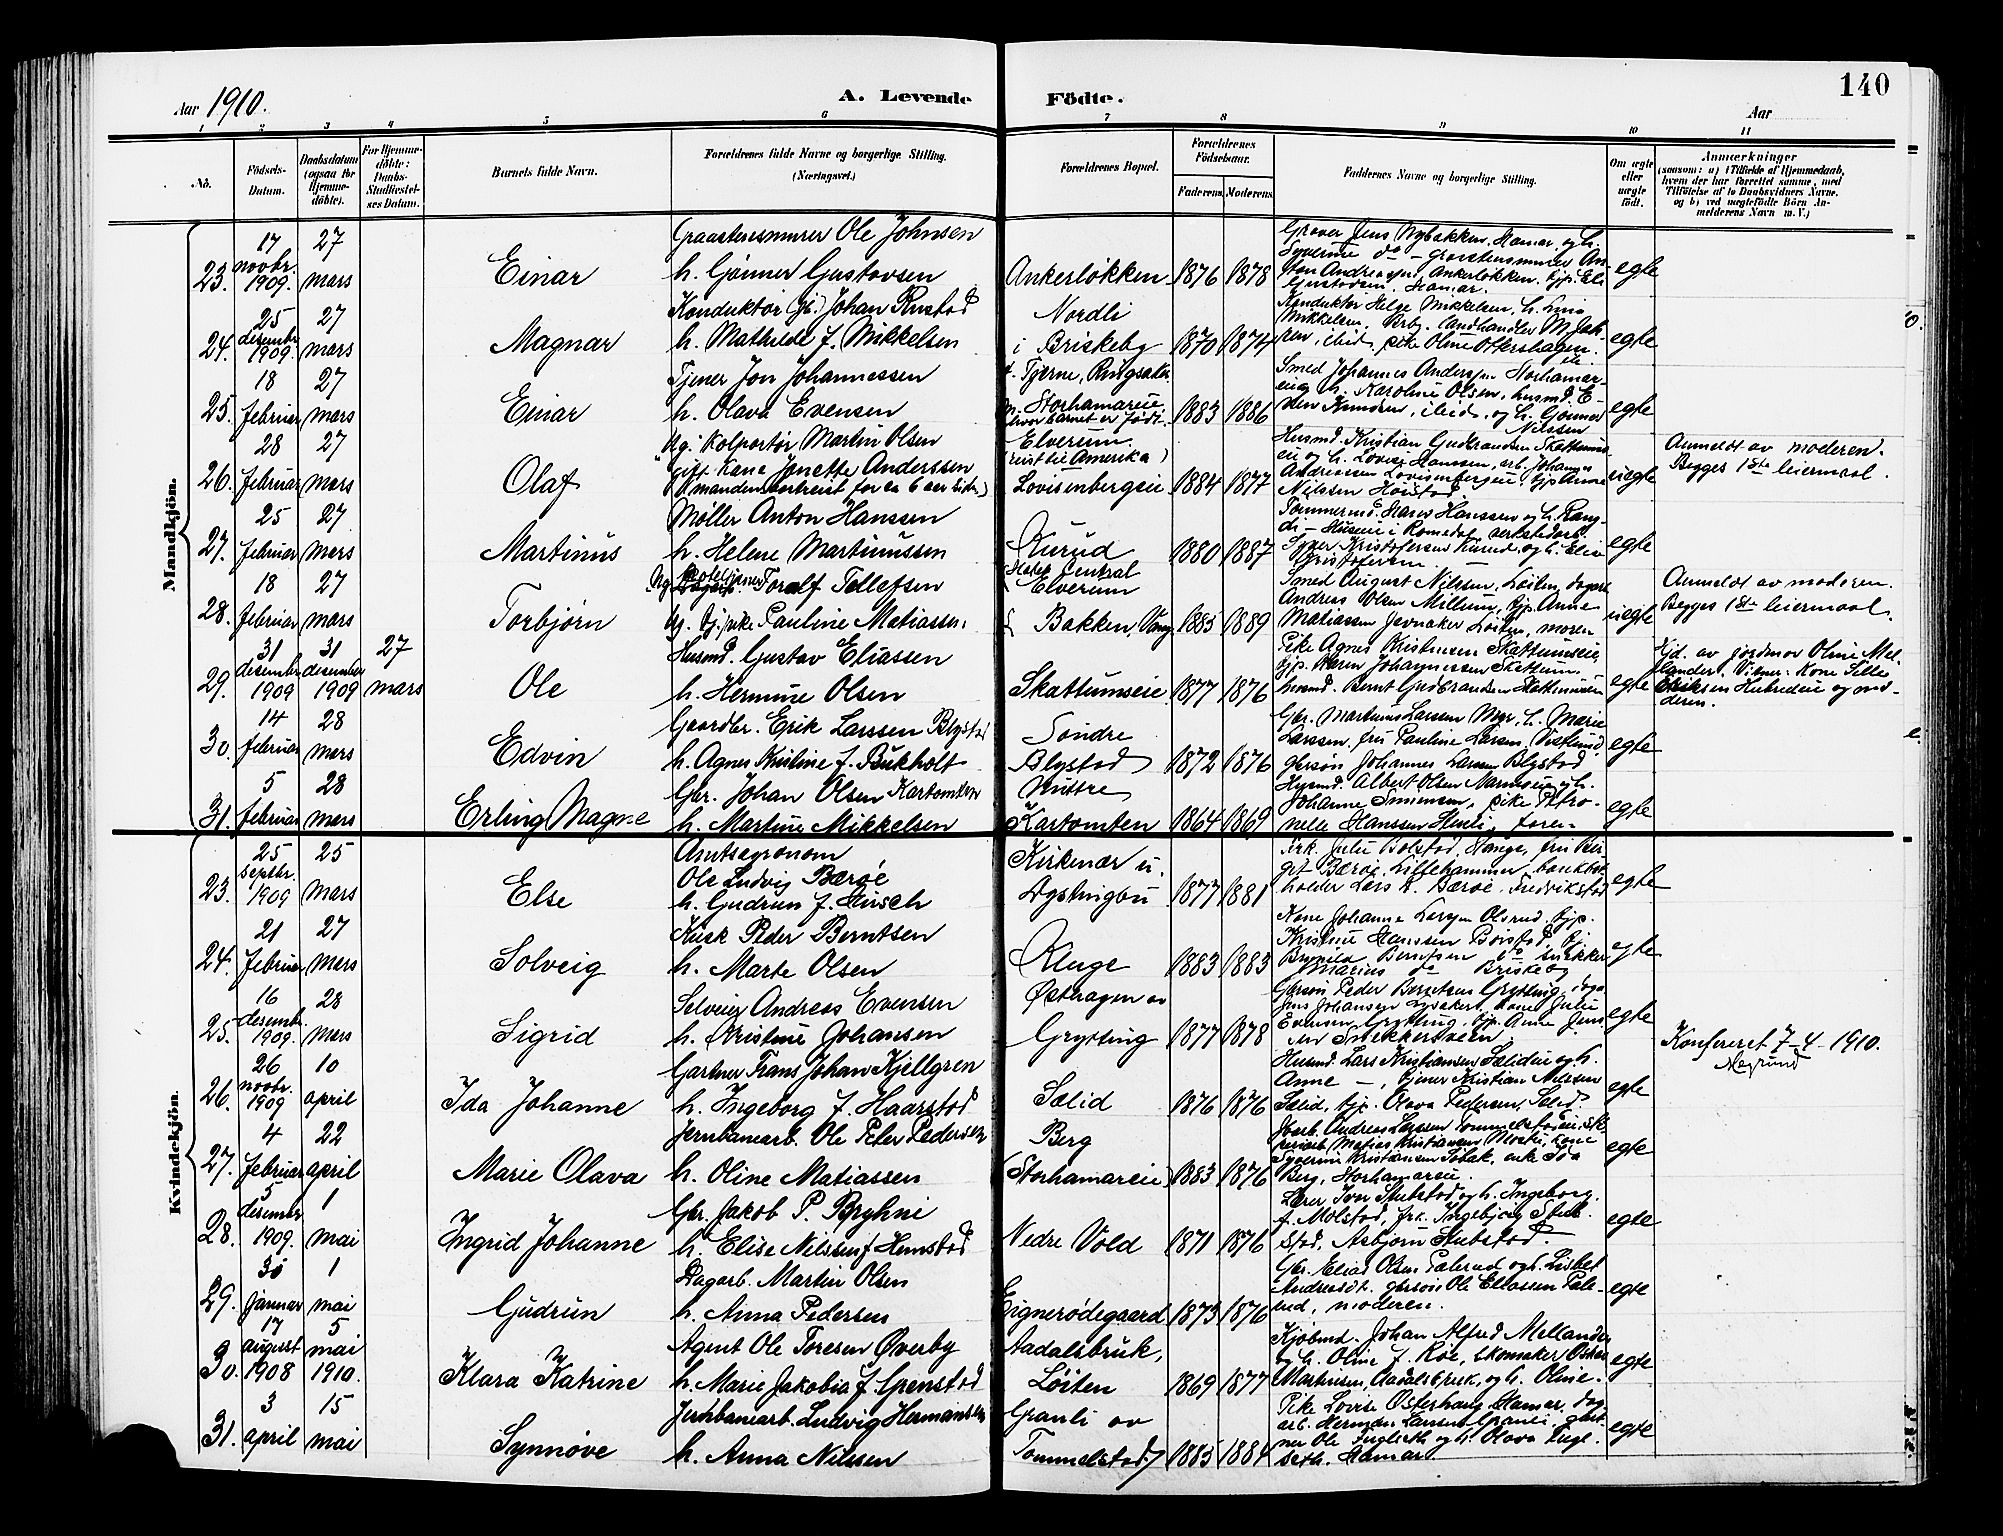 140
Aar 1910.
A. Levende Födte.
Aar
1 2 3 4 5 6 7 8 9 10 11
No.
Födsels-Datum.
Daabsdatum (ogsaa for Hjemmedöbte).
For Hjemmedöbte: Daabs-Stadfæstelses Datum.
Barnets fulde Navn.
Forældrenes fulde Navne og borgerlige Stilling. (Næringsvei.)
Forældrenes Bopæl.
Forældrenes Födselsaar.
Faderens. Moderens.
Faddernes Navne og borgerlige Stilling.
Om ægte eller uægte födt.
Anmærkninger
(saasom: a) i Tilfælde af Hjemmedaab,
hvem der har forrettet samme, med
Tilföielse af to Daabsvidners Navne.
og b) ved uægtefödte Börn Anmelderens Navn m. V.)
Mandkjön.
23. 17 novbr. 1909. 27 mars
Einar
Graastensmurer Ole Johnsen
h. Gunner Gustavsen
Ankerløkken 1876 1878
Graver Jens Nybakken, Hamar, og h.
Syverine do
Andreasen, Ankerløkken
Hamar.
egte
24. 25 desembr. 1909. 27 mars
Magnar
Konduktør Johan Rustad
h. Mathilde f. Mikkelsen
Nordli
i Briskeby 1870 1874
Konduktør Helge Mikkelsen, h. Lina
Mikkelsen, landhandler
ibid, pike Oline Ottershagen.
egte
25. 18 februar 27 mars
Einar
Tjener Jon Johannessen
h. Olava Evensen
f. Tjerne, Ringsaker
m. Storhamareie
hvor barnet er født. 1883 1886
Smed Johannes Andersen Storhamar-
eie, h. Karoline Olsen, husmd. E-
ven Knudsen, ibid, og h. Gunner
Nilssen
egte
26. 28 februar 27 mars
Olaf
Ug. kolportør Martin Olsen
gift Kone Jonette Anderssen
(manden bortreist for ca 6 aar siden)
Elverum.
(reist til Amerika)
Lovisenbergeie 1884 1877
Husmd. Kristian Gudbrandsen Skattums-
eie og h. Lovise Hanssen, arb. Johannes
Andreasen Lovisenbergeie, pige Anne
Nilssen Hoistad
uegte
Anmeldt av moderen.
Begges 1ste leiermaal.
27. 25 februar 27 mars
Martinus
Møller Anton Hanssen
h. Helene Martinussen
Kurud 1880 1887
Tømmermd. Hans Hanssen og h. Ran-
di – Huseie i Romedal, verkstedarb.
Syver Kristofersen Kurud, og h. Elise
Kristofersen
egte
28. 18 februar 27 mars
Torbjørn
Ug. hoteltjener Toralf Tellefsen
Ug. tj. pike Pauline Matiassen.
Hotel Central
Elverum
Bakken, Vang 1885 1889
Smed August Nilssen, Løiten, dagarb.
Andreas Olsen Millum, pige Anne
Matiassen Jevnaker Løiten, moren
uegte
Anmeldt av moderen.
Begges 1ste leiermaal.
29. 31 desembr. 1909 31 desember 1909 27 mars
Ole
Husmd. Gustav Eliassen
h. Hermine Olsen
Skattumseie 1877 1876
Pike Agnes Kristiansen Skattumseie,
pige Karen Johannessen Skattum,
husmd. Bernt Gudbrandsen Skattumseie
egte
Hjd. av jordmor Oline Mel-
lander. Vitner: Kone Sille
Eriksen Hubredeie og mo-
deren.
30. 14 februar 28 mars
Edvin
Gaardbr. Erik Larssen Blystad
h. Agnes Kristine f. Bukholt
Søndre
Blystad 1872 1876
Gbr. Martinus Larssen Myr, h. Marie
Larssen, frü Pauline Larsen, Vistlund,
gbrsøn Johannes Larssen Blystad
egte
31. 5 februar 28 mars
Erling Magne
Gbr. Johan Olsen Kartomten
h. Martine Mikkelsen
Nustre
Kartomten 1864 1869
Husmd. Albert Olsen og h.
Johanne Simensen, pike Petro-
nelle Hanssen foren-
egte
Kvindekjön.
23. 25 septbr. 1909 25 mars
Else
Amtsagronom
Ole Ludvig Bærøe
h. Gudrun f. Hirsch
Kirkenær u.
Dystingbu 1877 1881
Frk. Julie Bolstad, Stange, frü Bir-
git Bærøe, Lillehammer, bankbok
holder Lars A. Bærøe, Fredrikstad
egte
24. 21 februar 27 mars
Solveig
Kusk Peder Berntsen
h. Marte Olsen
Kluge 1883 1883
Kone Johanne Larsen Olsrud,
Kristine Hanssen Børstad,
Berntsen snekker
Marius do Briskeby
egte
25. 16 desembr. 1909. 28 mars
Sigrid
Selveier Andreas Evensen
h. Kristine Johansen
Østhagen av
Grysting 1877 1878
Gbrsøn Peder Berntsen Grytting,
Jens Johansen Lysaker, kone Julie
Evensen Grytting, Anne Jens-
sen Snekkersveen.
egte
Konfereret 7-4-1910.
26. 26 novbr. 1909 10 april
Ida Johanne
Gartner Frans Johan Kjellgren
h. Ingeborg f. Haarstad
Sælid 1876 1876
Husmd. Lars Kristiansen Sælideie og h.
Anne –, tjener Kristian Nilssen
Sælid, pige Olava Pedersen, Sælid
egte
27. 4 februar 22 april
Marie Olava
Jernbanearb. Ole Peter Pedersen
h. Oline Matiassen
Berg
(Storhamareie) 1883 1876
Jbarb. Andreas Larssen Tommelstadeie,
Matias Kristiansen kone
Syverine Kristiansen enke Ida
Berg, Storhamareie.
egte
28. 5 desember 1909. 1 mai
Ingrid Johanne
Gbr. Jakob P. Bryhni
h. Elise Nilssen f. Hemstad
Nedre Vold 1871 1876
Lærer Iver Stubstad og h. Ingeborg
f. Molstad, frk. Ingebjørg Stub-
stad, Asbjørn Stubstad.
egte
29. 30 januar 1 mai
Gudrun
Dagarb. Martin Olsen
h. Anna Pedersen
Eignerødegaard 1873 1876
Gbr. Elias Olsen Pålerud og h. Lisbet
Andreasdt. gbrsøn Ole Eliassen Påle-
rud, moderen.
egte
30. 17 august 1908 5 mai 1910.
Klara Katrine
Agent Ole Toresen Øverby
h. Marie Jakobia f. Grenstad
Aadalsbruk,
Løiten 1869 1877
Kjøbmd. Johan Alfred Mellander
og h. Oline f. Roe, skomaker Oskar
Martinsen, Aadalsbruk, og h. Oline.
egte
31. 3 april 15 mai
Synnøve
Jernbanearb. Ludvig Hermansen
h. Anna Nilssen
Granli av
Tommelstad 1885 1884
Pike Lovise Østerhaug Hamar, dag-
arb. Herman Larssen Granli,
Ole Fuglseth og h. Olava Fugl-
seth. Hamar.
egte